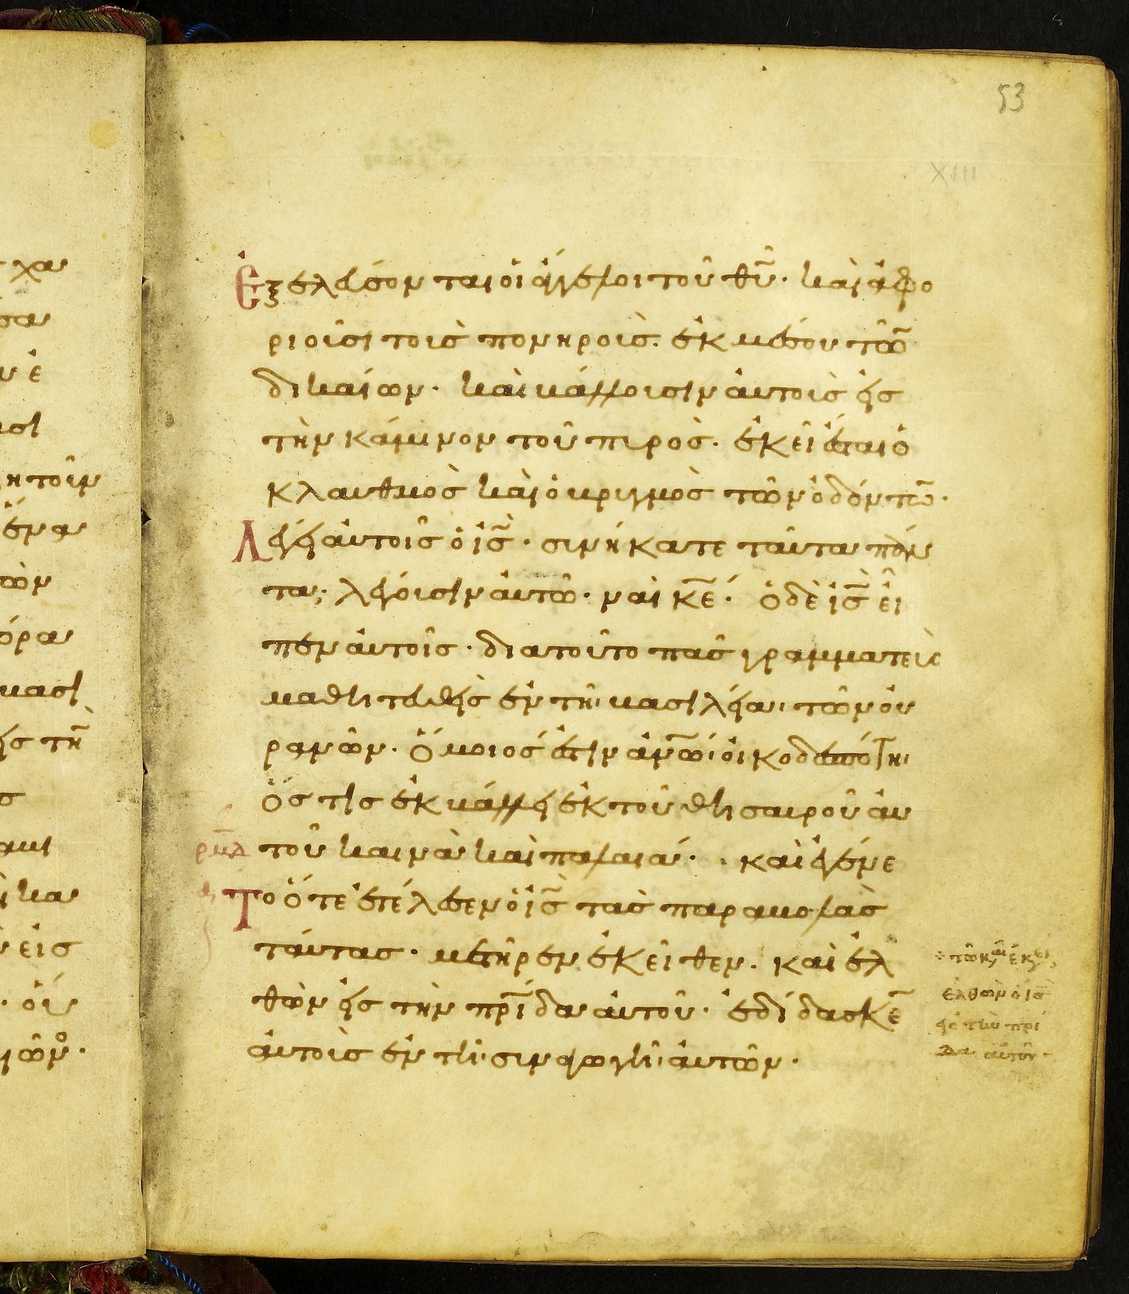 53
XIII
Ἐξελεύσονται οἱ ἄγγελοι τοῦ θ̅υ̅· καὶ ἀφο
ριοῦσι τοὺς πονηροὺς· ἐκ μέσου τῶ̅
δικαίων· καὶ βάλλουσιν αὐτοὺς εἰς
τὴν κάμινον τοῦ πυρὸς· ἐκεῖ ἔσται ὁ
κλαυθμὸς καὶ ὁ βρυγμὸς τῶν ὀδόντω̅·
Λέγει αὐτοῖς ὁ ι̅ς̅· συνήκατε ταῦτα πάν
τα; λέγουσιν αὐτῶ· ναὶ κ̅ε̅· ὁ δὲ ι̅ς̅ εἶ
πεν αὐτοῖς· διατοῦτο πᾶς γραμματεὺς
μαθητευθεὶς ἐν τῆι βασιλείαι τῶν οὐ
ρανῶν· ὅμοιός ἐστιν ἀν̅ω̅ι οἰκοδεσπότηι
ὅστις ἐκβάλλει ἐκ τοῦ θησαυροῦ αὐ
τοῦ καινὰ καὶ παλαιά· καὶ ἐγένε
το ὅτε ἐτέλεσεν ὁ ι̅ς̅ τὰς παραβολὰς
ταύτας· μετῆρεν ἐκεῖθεν. καὶ ἐλ
θὼν εἰς τὴν π̅ρ̅ίδα αὐτοῦ· ἐδίδασκε̅
αὐτοὺς ἐν τῆι συναγωγῆι αὐτῶν·
ἐλθὼν ὁ ι̅ς̅
εἰς τὴν π̅ρ̅ί
δα αὐτοῦ·